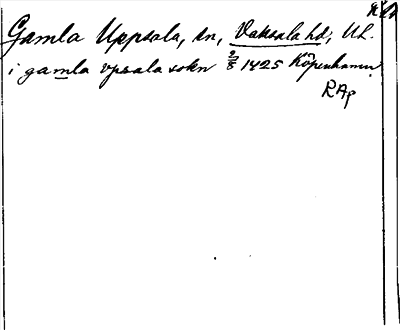 Gamla Uppsala, sn, Vaksala hd, Ul.
i gamla vpsala sokn 2/8 1425 Köpenhamn
RAp